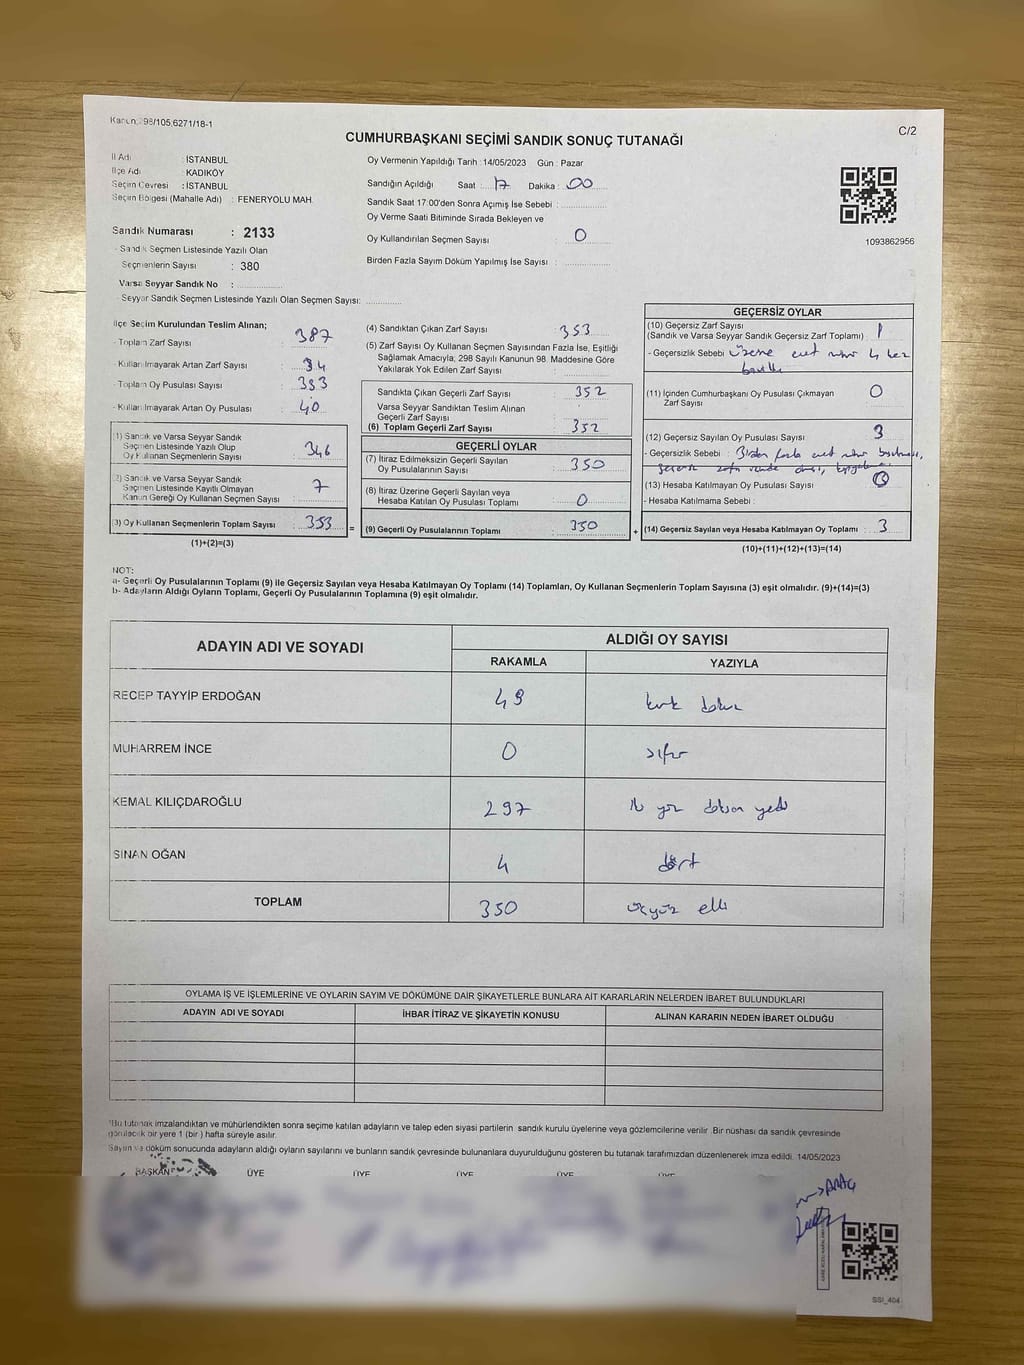 Kanun 298/105,6271/18-1
C/2
CUMHURBAŞKANI SEÇİMİ SANDIK SONUÇ TUTANAĞI
İl Adı : İSTANBUL
İlçe Adı : KADIKÖY
Seçim Çevresi : İSTANBUL
Seçim Bölgesi (Mahalle Adı) : FENERYOLU MAH.
Sandık Numarası : 2133
- Sandık Seçmen Listesinde Yazılı Olan
Seçmenlerin Sayısı : 380
Varsa Seyyar Sandık No :
- Seyyar Sandık Seçmen Listesinde Yazılı Olan Seçmen Sayısı:
Oy Vermenin Yapıldığı Tarih : 14/05/2023 Gün : Pazar
Sandığın Açıldığı Saat : 17 Dakika : 00
Sandık Saat 17:00'den Sonra Açımış İse Sebebi :
Oy Verme Saati Bitiminde Sırada Bekleyen ve
Oy Kullandırılan Seçmen Sayısı : 0
Birden Fazla Sayım Döküm Yapılmış İse Sayısı :
1093862956
İlçe Seçim Kurulundan Teslim Alınan;
- Toplam Zarf Sayısı : 387
- Kullanılmayarak Artan Zarf Sayısı : 34
- Toplam Oy Pusulası Sayısı : 393
- Kullanılmayarak Artan Oy Pusulası : 40
(1) Sandık ve Varsa Seyyar Sandık
Seçmen Listesinde Yazılı Olup
Oy Kullanan Seçmenlerin Sayısı : 346
(2) Sandık ve Varsa Seyyar Sandık
Seçmen Listesinde Kayıtlı Olmayan
Kanun Gereği Oy Kullanan Seçmen Sayısı : 7
(3) Oy Kullanan Seçmenlerin Toplam Sayısı : 353
(1)+(2)=(3)
(4) Sandıktan Çıkan Zarf Sayısı : 353
(5) Zarf Sayısı Oy Kullanan Seçmen Sayısından Fazla İse, Eşitliği
Sağlamak Amacıyla; 298 Sayılı Kanunun 98. Maddesine Göre
Yakılarak Yok Edilen Zarf Sayısı :
Sandıkta Çıkan Geçerli Zarf Sayısı : 352
Varsa Seyyar Sandıktan Teslim Alınan
Geçerli Zarf Sayısı :
(6) Toplam Geçerli Zarf Sayısı : 352
GEÇERLİ OYLAR
(7) İtiraz Edilmeksizin Geçerli Sayılan
Oy Pusulalarının Sayısı : 350
(8) İtiraz Üzerine Geçerli Sayılan veya
Hesaba Katılan Oy Pusulası Toplamı : 0
= (9) Geçerli Oy Pusulalarının Toplamı : 350
GEÇERSİZ OYLAR
(10) Geçersiz Zarf Sayısı
(Sandık ve Varsa Seyyar Sandık Geçersiz Zarf Toplamı) : 1
- Geçersizlik Sebebi : üzerine evet mührü
(11) İçinden Cumhurbaşkanı Oy Pusulası Çıkmayan
Zarf Sayısı : 0
(12) Geçersiz Sayılan Oy Pusulası Sayısı : 3
- Geçersizlik Sebebi : Birden fazla evet mührü
(13) Hesaba Katılmayan Oy Pusulası Sayısı :
- Hesaba Katılmama Sebebi :
+ (14) Geçersiz Sayılan veya Hesaba Katılmayan Oy Toplamı : 3
(10)+(11)+(12)+(13)=(14)
NOT:
a- Geçerli Oy Pusulalarının Toplamı (9) ile Geçersiz Sayılan veya Hesaba Katılmayan Oy Toplamı (14) Toplamları, Oy Kullanan Seçmenlerin Toplam Sayısına (3) eşit olmalıdır. (9)+(14)=(3)
b- Adayların Aldığı Oyların Toplamı, Geçerli Oy Pusulalarının Toplamına (9) eşit olmalıdır.
ADAYIN ADI VE SOYADI
ALDIĞI OY SAYISI
RAKAMLA YAZIYLA
RECEP TAYYİP ERDOĞAN 49 kırk dokuz
MUHARREM İNCE 0 sıfır
KEMAL KILIÇDAROĞLU 297 iki yüz doksan yedi
SİNAN OĞAN 4 dört
TOPLAM 350 üçyüz elli
OYLAMA İŞ VE İŞLEMLERİNE VE OYLARIN SAYIM VE DÖKÜMÜNE DAİR ŞİKAYETLERLE BUNLARA AİT KARARLARIN NELERDEN İBARET BULUNDUKLARI
ADAYIN ADI VE SOYADI İHBAR İTİRAZ VE ŞİKAYETİN KONUSU ALINAN KARARIN NEDEN İBARET OLDUĞU
*Bu tutanak imzalandıktan ve mühürlendikten sonra seçime katılan adayların ve talep eden siyasi partilerin sandık kurulu üyelerine veya gözlemcilerine verilir. Bir nüshası da sandık çevresinde
görülecek bir yere 1 (bir) hafta süreyle asılır.
Sayım ve döküm sonucunda adayların aldığı oyların sayılarını ve bunların sandık çevresinde bulunanlara duyurulduğunu gösteren bu tutanak tarafımızdan düzenlenerek imza edildi. 14/05/2023
BAŞKAN ÜYE ÜYE ÜYE ÜYE ÜYE
SSI_404